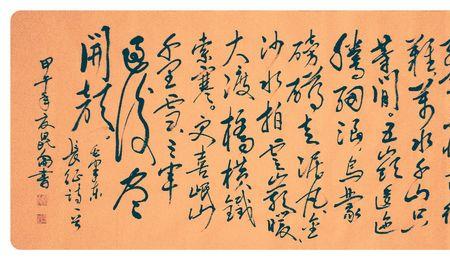 難萬水千山只
等閒。五嶺逶迤
騰細浪烏蒙
磅礴走泥丸金
沙水拍雲崖暖
大渡橋橫鐵
索寒。更喜岷山
千里雪三軍
過後盡
開顏
毛澤東
長征詩一首
甲午年夏昆書